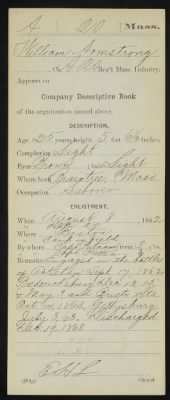 A 20 Mass.
William Armstrong
Co. 20 Reg't Mass. Infantry.
Appears on
Company Descriptive Book
of the organization named above.
DESCRIPTION.
Age 25 years; height 5 feet 6 inches.
Complexion Light
Eyes Brown; hair Light
Where born Braintree, Mass.
Occupation Laborer
ENLISTMENT.
When August 8, 1862.
Where Boston
Where
By whom term 3 y'rs.
Remarks: Engaged in the battles
of Antietam Sept. 17, 1862
Fredericksburg Dec. 12, 13
& May 3 and Bristo Sta.
Oct. 14, 1863. Gettysburg
July 3, 63. Discharged
Dec. 19, 1863
Copyist.